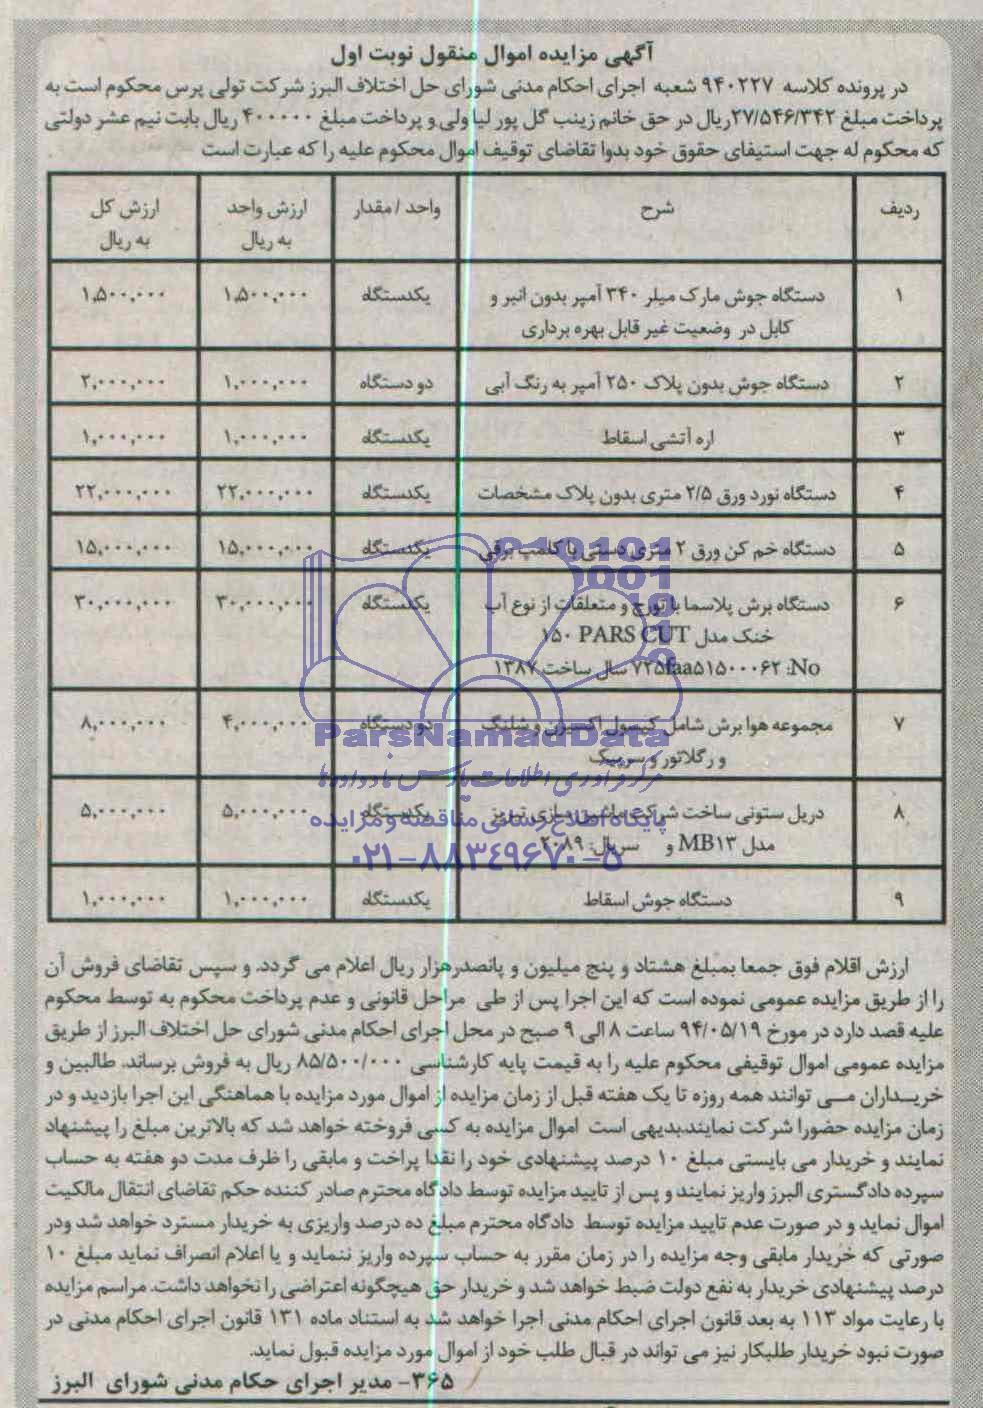 آگهی مزایده اموال منقول نوبت اول
در پرونده کلاسه ۹۴۰۲۲۷ شعبه اجرای احکام مدنی شورای حل اختلاف البرز شرکت تولی پرس محکوم است به
پرداخت مبلغ ۲۷/۵۴۶/۳۴۲ریال در حق خانم زینب گل پور لیا ولی و پرداخت مبلغ ۴۰۰۰۰۰ ریال بابت نیم عشر دولتی
که محکوم له جهت استیفای حقوق خود بدوا تقاضای توقیف اموال محکوم علیه را که عبارت است
ردیف شرح واحد / مقدار ارزش واحد به ریال ارزش کل به ریال
۱ دستگاه جوش مارک میلر ۳۴۰ آمپر بدون انبر و یکدستگاه ۱,۵۰۰,۰۰۰ ۱,۵۰۰,۰۰۰
کابل در وضعیت غیر قابل بهره برداری
۲ دستگاه جوش بدون پلاک ۲۵۰ آمپر به رنگ آبی دو دستگاه ۱,۰۰۰,۰۰۰ ۲,۰۰۰,۰۰۰
۳ اره آتشی اسقاط یکدستگاه ۱,۰۰۰,۰۰۰ ۱,۰۰۰,۰۰۰
۴ دستگاه نورد ورق ۲/۵ متری بدون پلاک مشخصات یکدستگاه ۲۲,۰۰۰,۰۰۰ ۲۲,۰۰۰,۰۰۰
۵ دستگاه خم کن ورق ۲ متری دستی با کلمپ برقی یکدستگاه ۱۵,۰۰۰,۰۰۰ ۱۵,۰۰۰,۰۰۰
۶ دستگاه برش پلاسما با تورچ و متعلقات از نوع آب یکدستگاه ۳۰,۰۰۰,۰۰۰ ۳۰,۰۰۰,۰۰۰
خنک مدل PARS CUT ۱۵۰
No: ۷۲۵faa۵۱۵۰۰۰۶۲ سال ساخت ۱۳۸۷
۷ مجموعه هوا برش شامل کپسول اکسیژن و شلنگ دو دستگاه ۴,۰۰۰,۰۰۰ ۸,۰۰۰,۰۰۰
و رگلاتور و سرپیک
۸ دریل ستونی ساخت شرکت ماشین سازی تبریز یکدستگاه ۵,۰۰۰,۰۰۰ ۵,۰۰۰,۰۰۰
مدل MB۱۳ و سریال: ۲۰۸۹
۹ دستگاه جوش اسقاط یکدستگاه ۱,۰۰۰,۰۰۰ ۱,۰۰۰,۰۰۰
ParsNamadData
مرکز فرآوری اطلاعات پارس نماد داده ها
پایگاه اطلاع رسانی مناقصه و مزایده
۰۲۱-۸۸۳۴۹۶۷۰-۵
ارزش اقلام فوق جمعا بمبلغ هشتاد و پنج میلیون و پانصدرهزار ریال اعلام می گردد. و سپس تقاضای فروش آن
را از طریق مزایده عمومی نموده است که این اجرا پس از طی مراحل قانونی و عدم پرداخت محکوم به توسط محکوم
علیه قصد دارد در مورخ ۹۴/۰۵/۱۹ ساعت ۸ الی ۹ صبح در محل اجرای احکام مدنی شورای حل اختلاف البرز از طریق
مزایده عمومی اموال توقیفی محکوم علیه را به قیمت پایه کارشناسی ۸۵/۵۰۰/۰۰۰ ریال به فروش برساند. طالبین و
خریـداران مـی توانند همه روزه تا یک هفته قبل از زمان مزایده از اموال مورد مزایده با هماهنگی این اجرا بازدید و در
زمان مزایده حضورا شرکت نمایند.بدیهی است اموال مزایده به کسی فروخته خواهد شد که بالاترین مبلغ را پیشنهاد
نمایند و خریدار می بایستی مبلغ ۱۰ درصد پیشنهادی خود را نقدا پراخت و مابقی را ظرف مدت دو هفته به حساب
سپرده دادگستری البرز واریز نمایند و پس از تایید مزایده توسط دادگاه محترم صادر کننده حکم تقاضای انتقال مالکیت
اموال نماید و در صورت عدم تایید مزایده توسط دادگاه محترم مبلغ ده درصد واریزی به خریدار مسترد خواهد شد ودر
صورتی که خریدار مابقی وجه مزایده را در زمان مقرر به حساب سپرده واریز ننماید و یا اعلام انصراف نماید مبلغ ۱۰
درصد پیشنهادی خریدار به نفع دولت ضبط خواهد شد و خریدار حق هیچگونه اعتراضی را نخواهد داشت. مراسم مزایده
با رعایت مواد ۱۱۳ به بعد قانون اجرای احکام مدنی اجرا خواهد شد به استناد ماده ۱۳۱ قانون اجرای احکام مدنی در
صورت نبود خریدار طلبکار نیز می تواند در قبال طلب خود از اموال مورد مزایده قبول نماید.
۳۶۵- مدیر اجرای حکام مدنی شورای البرز